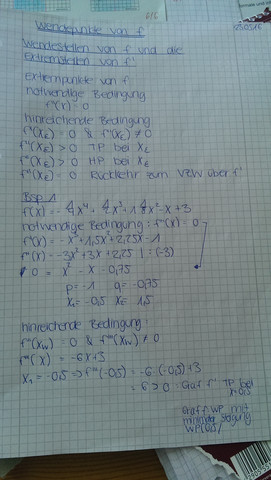 Wendepunkte von f
Wendestellen von f und die
Extremstellen von f'
Extrempunkte von f:
notwendige Bedingung
f'(x) = 0
hinreichende Bedingung
f'(xE) = 0 & f''(xE) ≠ 0
f''(xE) > 0 TP bei xE
f''(xE) > 0 HP bei xE
f''(xE) = 0 Rückkehr zum VZW über f'
Bsp 1
notwendige Bedingung: f''(x) = 0
f'(x) = -x³+1,5x²+2,25x-1
f''(x) = -3x²+3x+2,25 | :(-3)
0 = x² - x - 0,75
p = -1 q = -0,75
x₁ = -0,5 x₂ = 1,5
hinreichende Bedingung
f''(xW) = 0 & f'''(xW) ≠ 0
f'''(x) = -6x+3
x₁ = -0,5 => f'''(-0,5) = -6·(-0,5)+3
= 6 > 0 : Graf f' TP bei
x=-0,5
Graf f: WP mit
minimaler Steigung